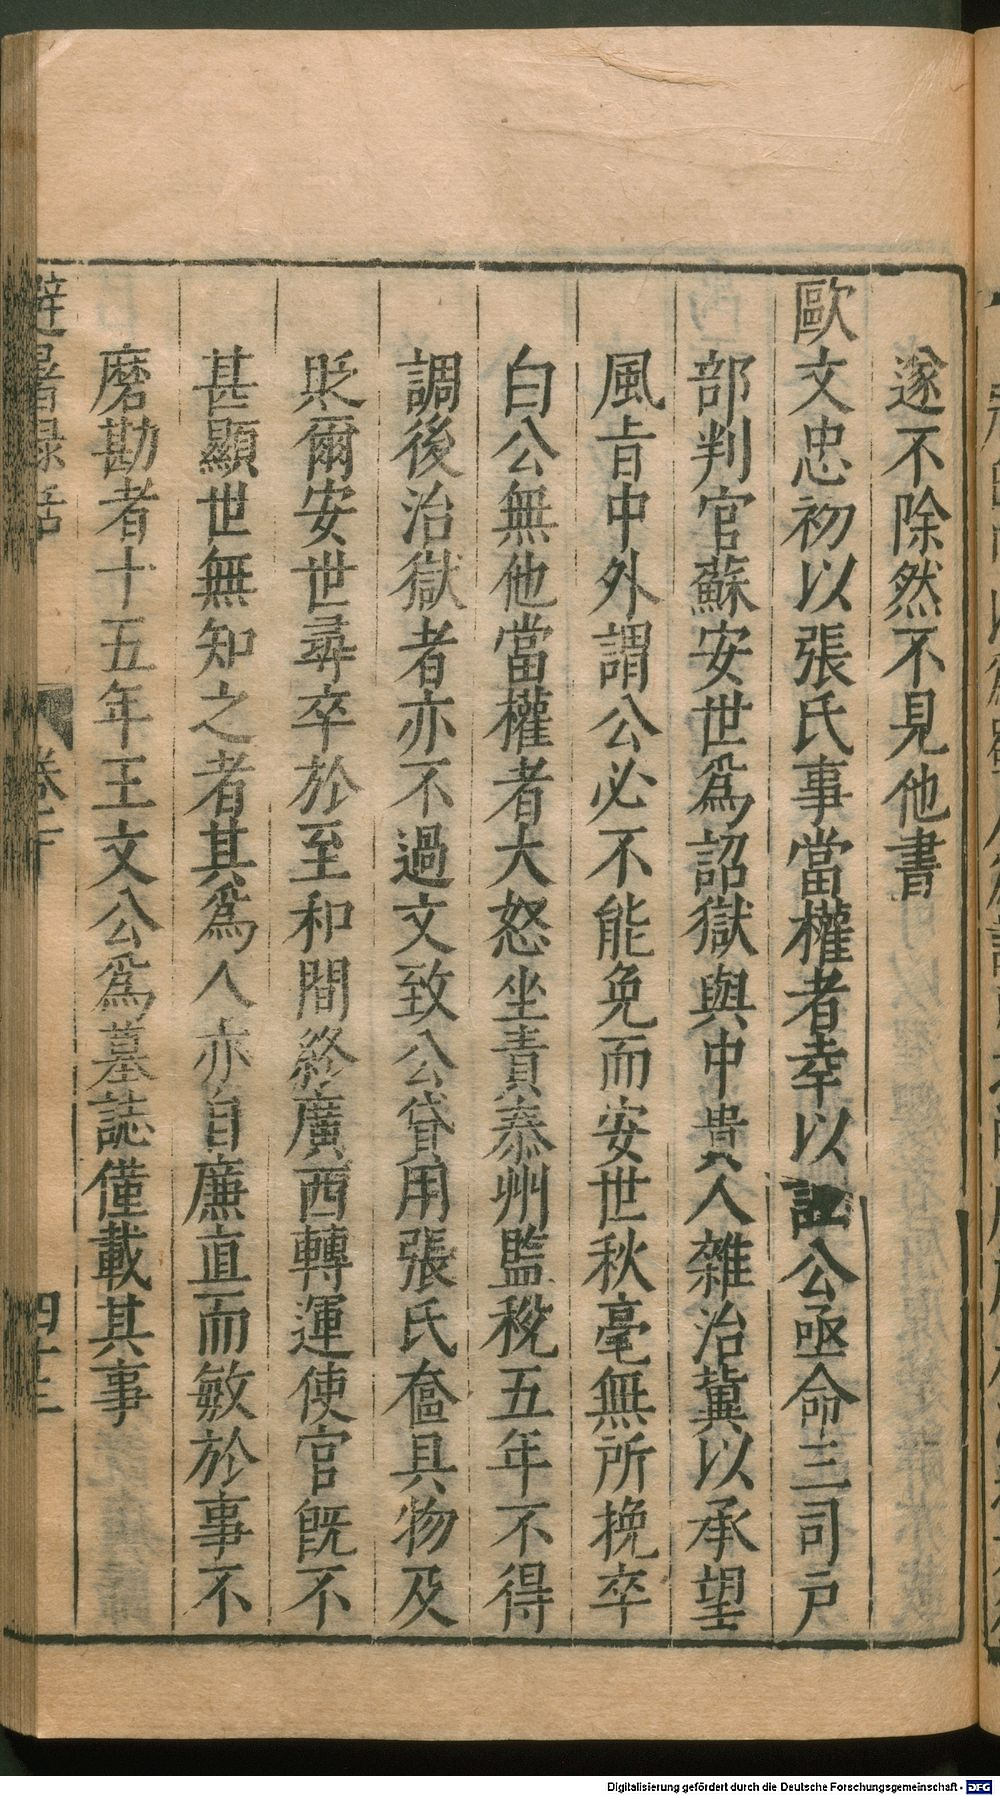 遂不除然不見他書
歐文忠初以張氏事當權者幸以誣公亟命三司戸
部判官蘇安世爲詔獄與中貴人雜治冀以承望
風旨中外謂公必不能免而安世秋毫無所挽卒
白公無他當權者大怒坐責泰州監稅五年不得
調後治獄者亦不過文致公貸用張氏奩具物及
貶爾安世尋卒於至和間終廣西轉運使官旣不
甚顯世無知之者其爲人亦自廉直而敏於事不
磨勘者十五年王文公爲墓誌僅載其事
避暑録話
四十三
Digitalisierung gefördert durch die Deutsche Forschungsgemeinschaft - DFG